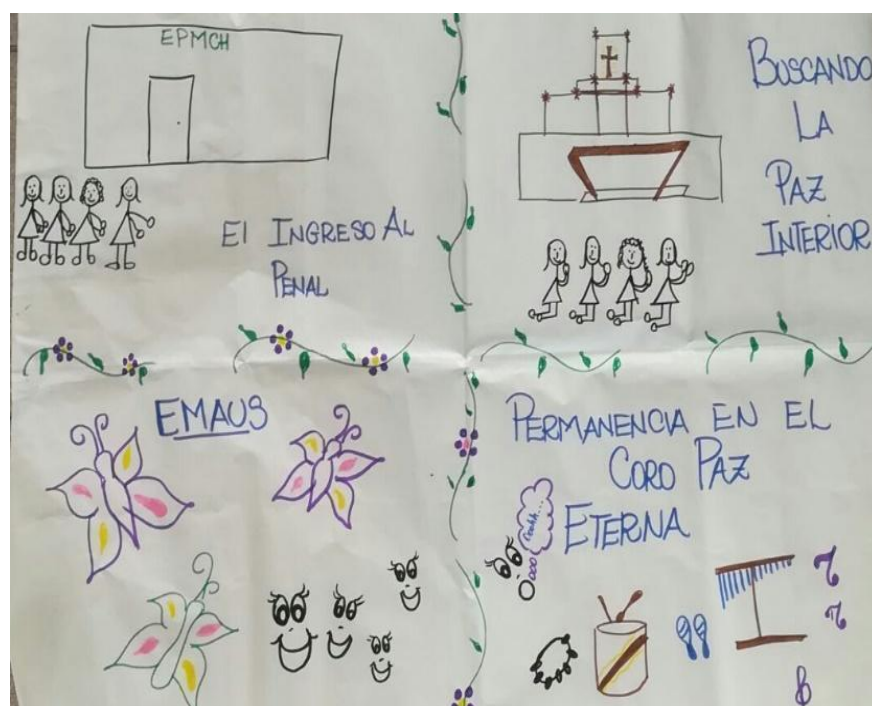 EPMCH
El INGRESO AL
PENAL
BUSCANDO
LA
PAZ
INTERIOR
EMAUS
PERMANENCIA EN EL
CORO PAZ
ETERNA